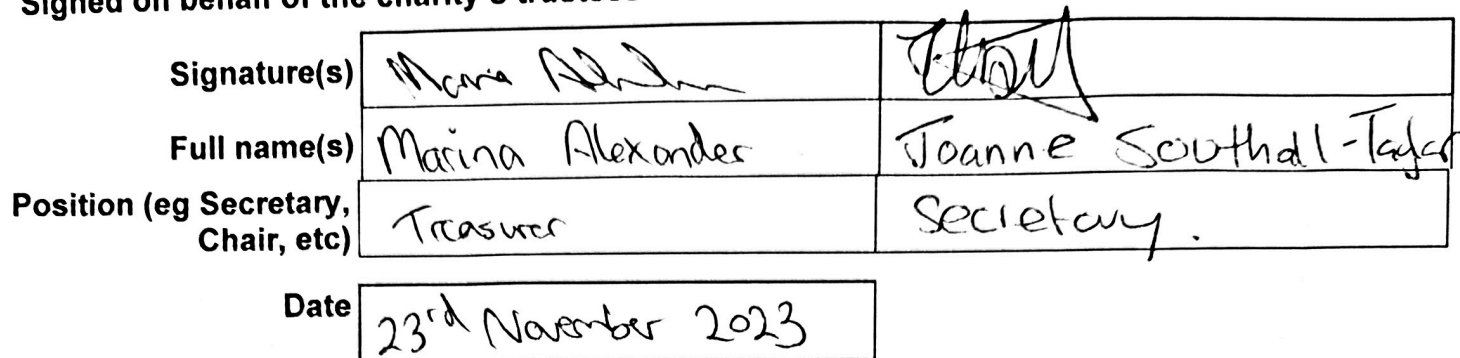 Signed on behalf of the charity's trustees
Signature(s)
Full name(s) Marina Alexander Joanne Southall-Taylor
Position (eg Secretary, Treasurer Secretary.
Chair, etc)
Date 23rd November 2023